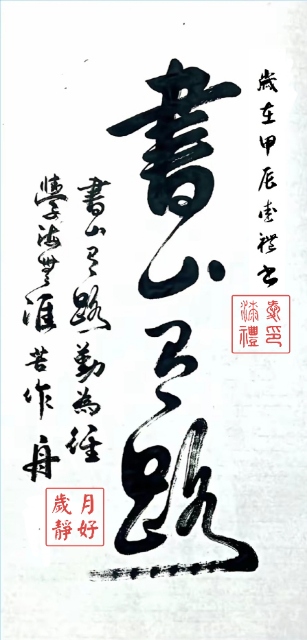 歲在甲辰禮书
書山有路
書山有路勤為徑
學海無涯苦作舟
月好
歲靜